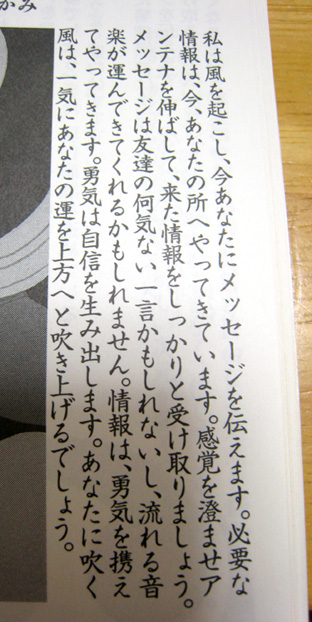 かみ
私は風を起こし、今あなたにメッセージを伝えます。必要な
情報は、今、あなたの所へやってきています。感覚を澄ませア
ンテナを伸ばして、来た情報をしっかりと受け取りましょう。
メッセージは友達の何気ない一言かもしれないし、流れる音
楽が運んできてくれるかもしれません。情報は、勇気を携え
てやってきます。勇気は自信を生み出します。あなたに吹く
風は、一気にあなたの運を上方へと吹き上げるでしょう。